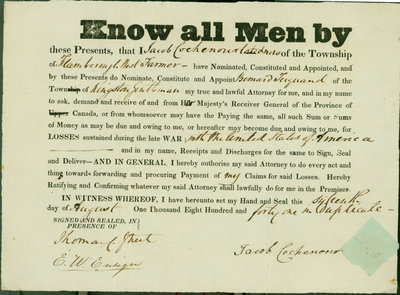 Know all Men by
these Presents, that I Jacob Cochenour of the Township
of Flamborough West Farmer — have Nominated, Constituted and Appointed, and
by these Presents do Nominate, Constitute and Appoint Bernard Turquand of the
Township of Kingston Gentleman my true and lawful Attorney for me, and in my name
to ask, demand and receive of and from Her Majesty's Receiver General of the Province of
Upper Canada, or from whomsoever may have the Paying the same, all such Sum or Sums
of Money as may be due and owing to me, or hereafter may become due and owing to me, for
LOSSES sustained during the late WAR with the United States of America
and in my name, Receipts and Discharges for the same to Sign, Seal
and Deliver—AND IN GENERAL I hereby authorise my said Attorney to do every act and
thing towards forwarding and procuring Payment of my Claims for said Losses. Hereby
Ratifying and Confirming whatever my said Attorney shall lawfully do for me in the Premises.
IN WITNESS WHEREOF, I have hereunto set my Hand and Seal this
day of August One Thousand Eight Hundred and forty one in duplicate —
SIGNED AND SEALED, IN
PRESENCE OF
Thomas C Street
E. W. Ensign
Jacob Cochenour